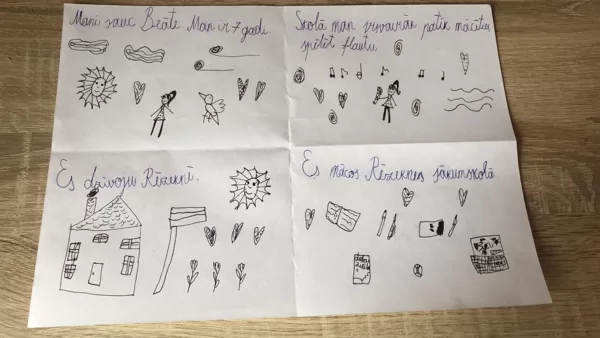 Mani sauc Beāte. Man ir 7 gadi.
Skolā man vivairāk patīk mācīties
spēlēt flautu
Es dzīvoju Rēzeknē.
Es mācos Rēzeknes sākumskolā